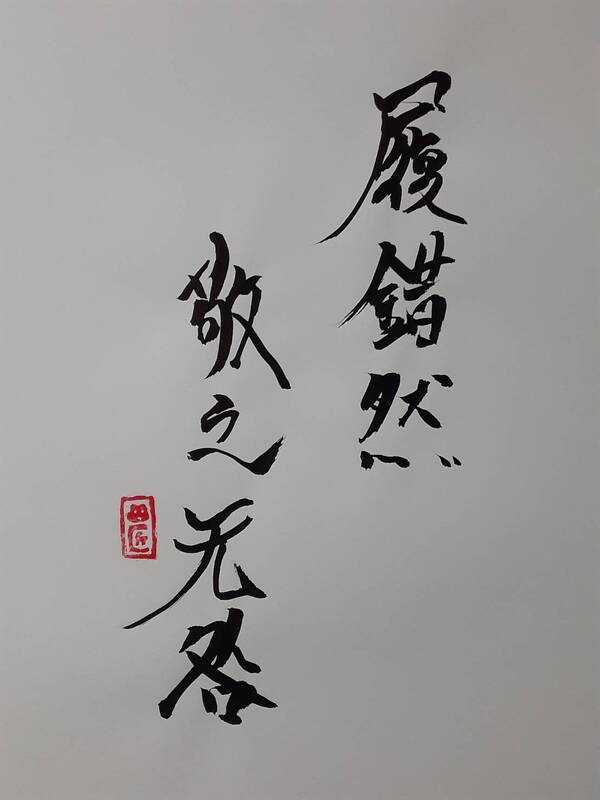 履錯然
敬之无咎